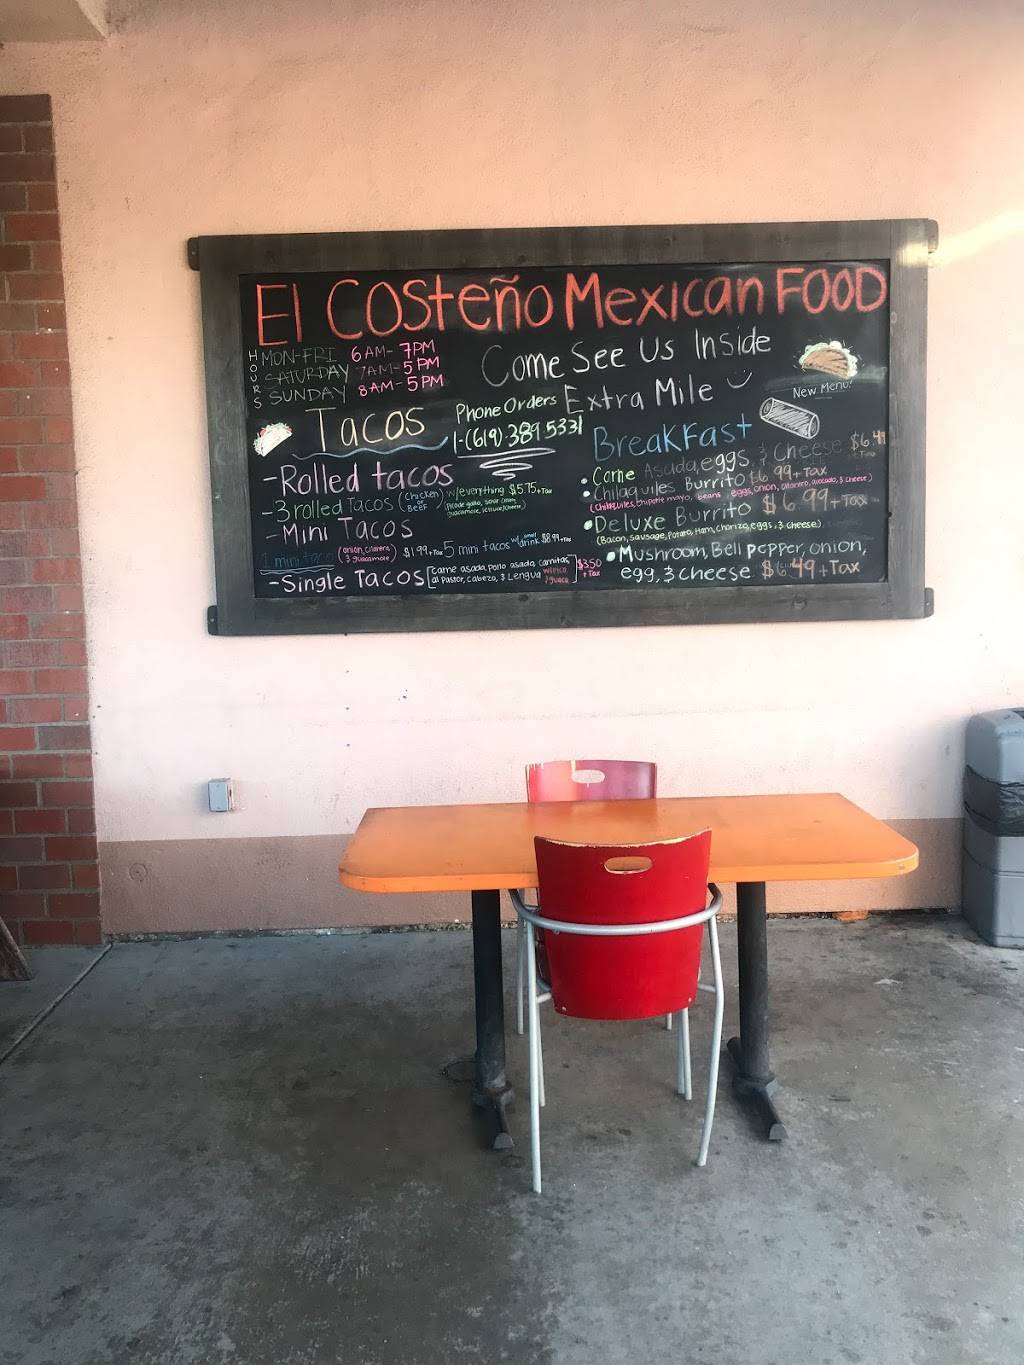 El Costeño Mexican Food
HOURS
MON-FRI 6AM-7PM
SATURDAY 7AM-5PM
SUNDAY 8AM-5PM
Come See Us Inside
Extra Mile
New Menu!
Phone Orders
1-(619)-389 5331
Tacos
-Rolled tacos
-3 rolled Tacos (Chicken or Beef) w/everything $5.75+Tax
(Pico de gallo, sour cream, guacamole, lettuce, cheese)
-Mini Tacos
1 mini taco (onion, cilantro & guacamole) $1.99+Tax 5 mini tacos w/ small drink $8.99+Tax
-Single Tacos [carne asada, pollo asada, carnitas, al pastor, cabeza, & Lengua w/pico /guaca] $3.50 + Tax
Breakfast
• Carne Asada, eggs, & Cheese $6.49 +Tax
• Chilaquiles Burrito $6.99+Tax
(Chilaquiles, chipotle mayo, beans, eggs, onion, cilantro, avocado, & cheese)
• Deluxe Burrito $6.99+Tax
(Bacon, Sausage, Potato, Ham, Chorizo, eggs, & cheese)
• Mushroom, Bell pepper, onion,
egg, & cheese $6.49+Tax